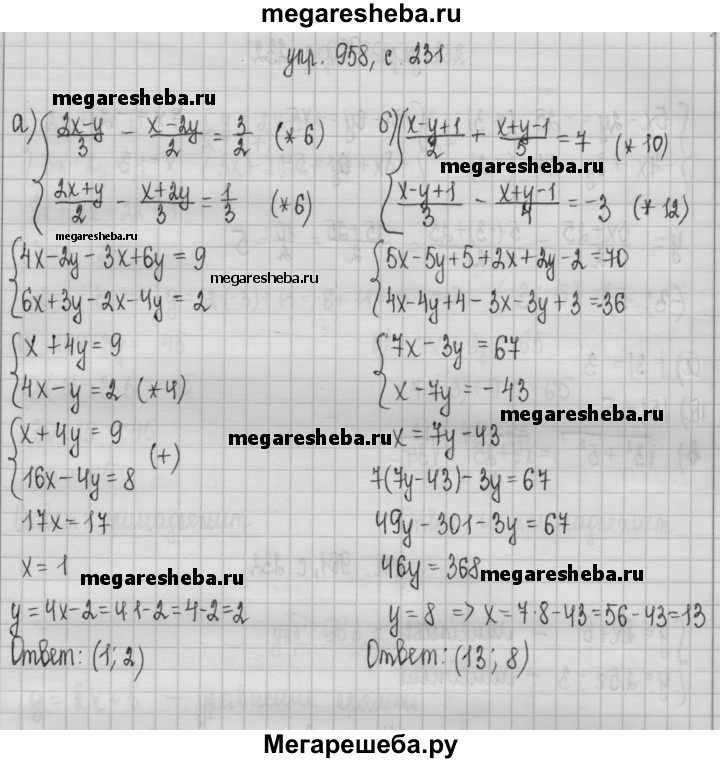 megaresheba.ru
упр. 958, с 231
megaresheba.ru
а) { (2x-y)/3 - (x-2y)/2 = 3/2 (*6)
(2x+y)/2 - (x+2y)/3 = 1/3 (*6)
megaresheba.ru
{ 4x-2y-3x+6y = 9
6x+3y-2x-4y = 2
{ x+4y=9
4x-y=2 (*4)
{ x+4y=9
16x-4y=8 (+)
17x=17
x=1
megaresheba.ru
y=4x-2=4·1-2=4-2=2
Ответ: (1; 2)
б) { (x-y+1)/2 + (x+y-1)/5 = 7 (*10)
megaresheba.ru
(x-y+1)/3 - (x+y-1)/4 = -3 (*12)
megaresheba.ru
{ 5x-5y+5+2x+2y-2=70
4x-4y+4-3x-3y+3=-36
{ 7x-3y=67
x-7y=-43
megaresheba.ru
megaresheba.ru
x=7y-43
7(7y-43)-3y=67
49y-301-3y=67
46y=368
megaresheba.ru
y=8 => x=7·8-43=56-43=13
Ответ: (13; 8)
Мегарешеба.ру